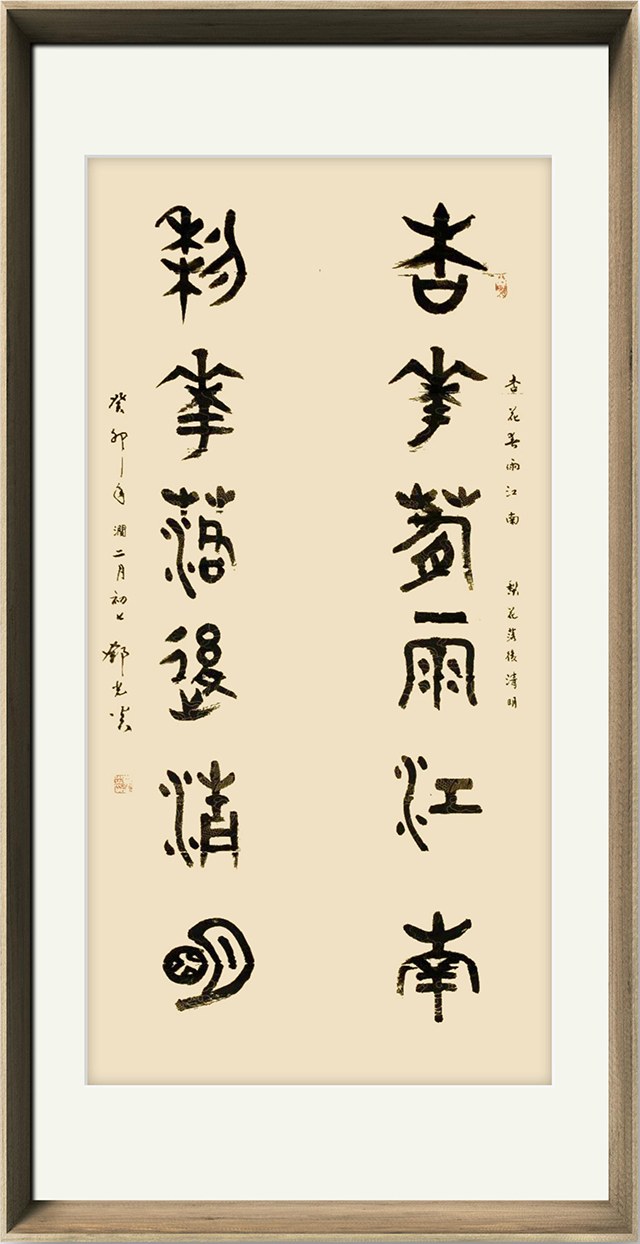 杏花春雨江南 梨花落後清明
杏華萅雨江南
梨華落後清明
癸卯年潤二月初七鄧光